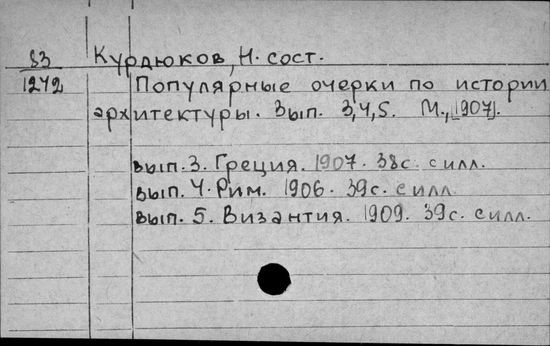 S3 Курдюков, Н. сост.
1272 Популярные очерки по истории
архитектуры. Вып. 3,4,5. М., [1907].
вып. 3. Греция. 1907. 38с. с илл.
вып. 4. Рим. 1906. 39с. с илл.
вып. 5. Византия. 1909. 39с. с илл.